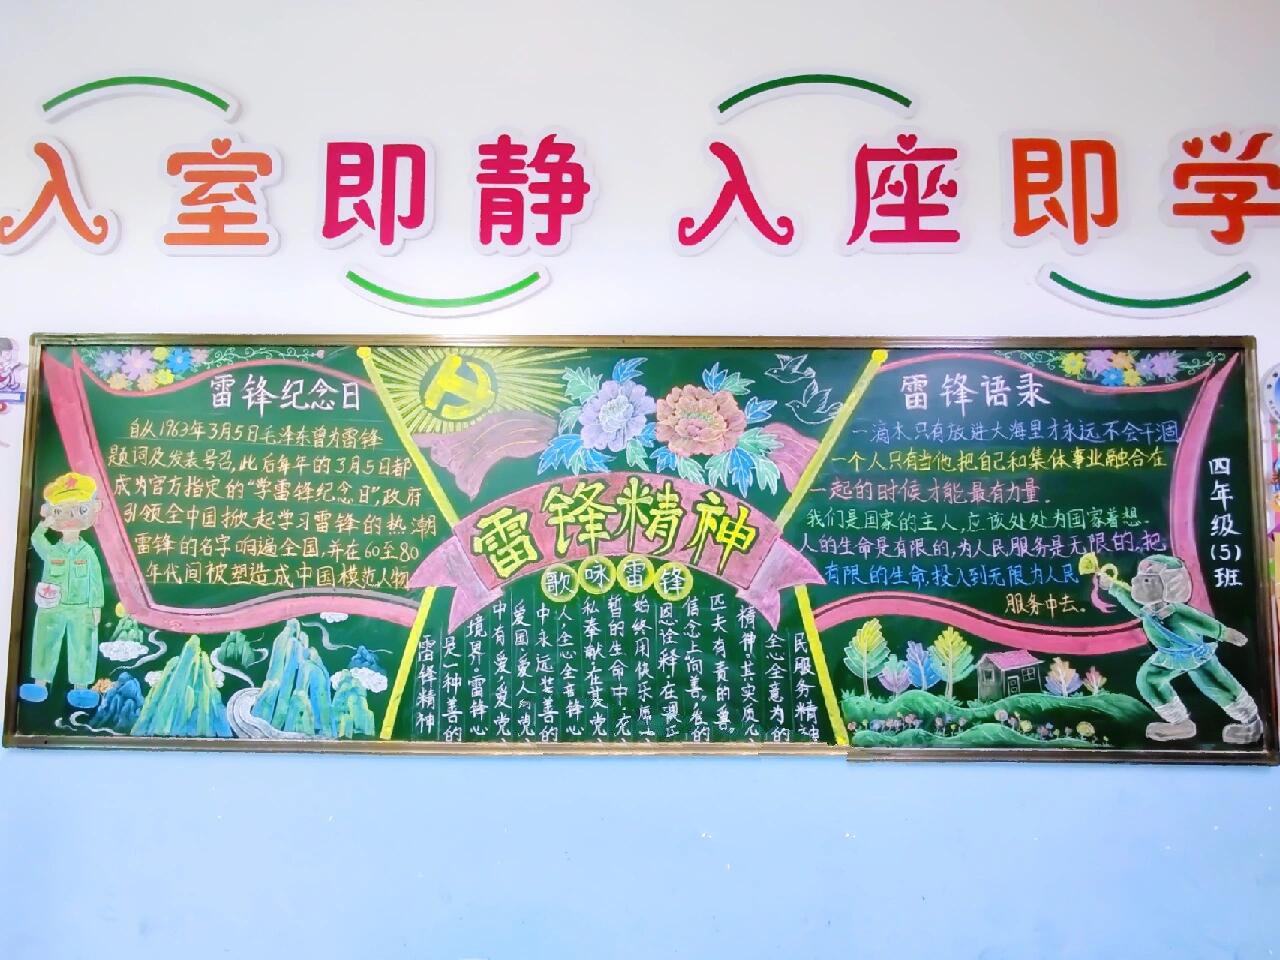 入室即静 入座即学
雷锋纪念日
自从1963年3月5日毛泽东曾为雷锋
题词及发表号召,此后每年的3月5日都
成为官方指定的“学雷锋纪念日”,政府
引领全中国掀起学习雷锋的热潮
雷锋的名字响遍全国,并在60至80
年代间被塑造成中国模范人物
雷锋精神
歌咏雷锋
雷锋精神
是一种善的
境界。雷锋心
中有爱,爱党、
爱国、爱人
中永远装着的
人全心全意
私奉献在某党
暂的生命中,充
始终用快乐
诠释,在
信念上向善,
匹夫有责的
精神,其实质
全心全意为的
民服务精神
雷锋语录
一滴水只有放进大海里才永远不会干涸
一个人只有当他把自己和集体事业融合在
一起的时候才能最有力量.
我们是国家的主人,应该处处为国家着想.
人的生命是有限的,为人民服务是无限的,把
有限的生命,投入到无限为人民
服务中去。
四年级(5)班